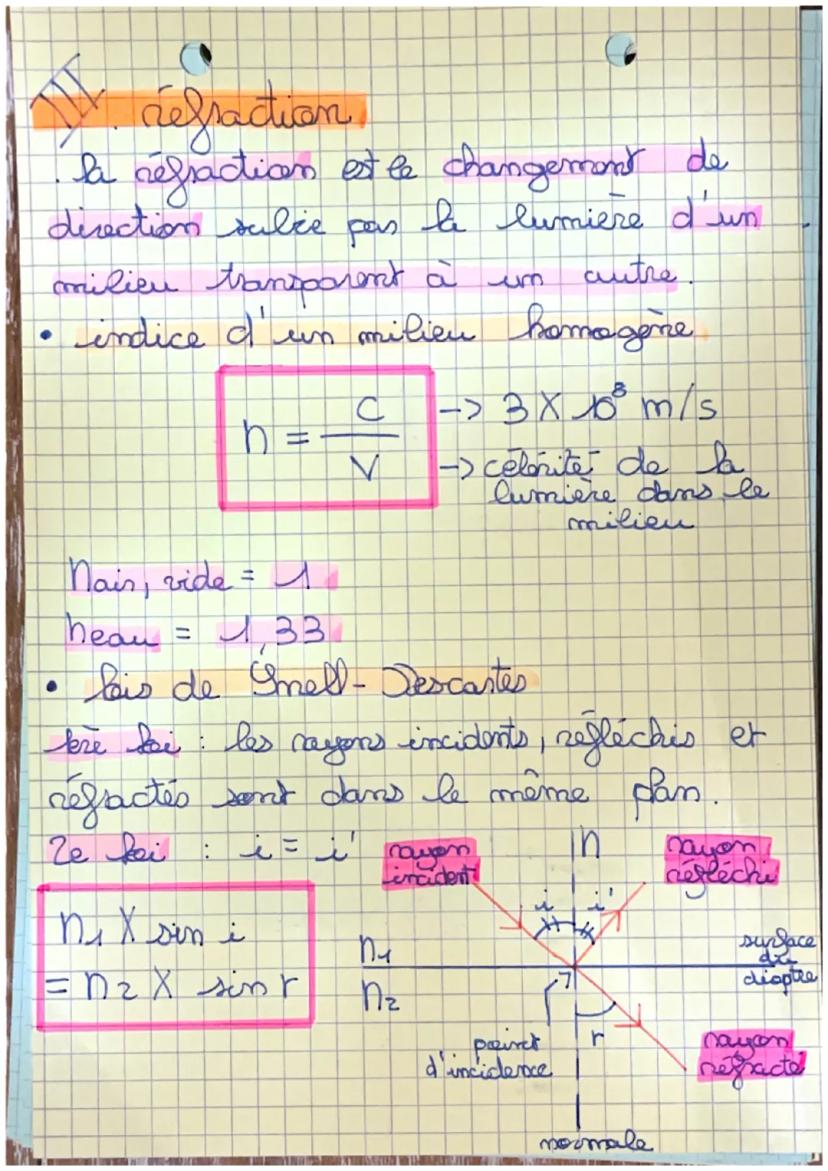 III. réfraction
. la réfraction est le changement de
direction subie par la lumière d'un
milieu transparent à un autre.
• indice d'un milieu homogène
n = C / V
-> 3 X 10⁸ m/s
-> célérité de la
lumière dans le
milieu
nair, vide = 1
neau = 1,33
• lois de Snell-Descartes
1ère loi : les rayons incidents, réfléchis et
réfractés sont dans le même plan.
2e loi : i = i'
n1 X sin i
= n2 X sin r
rayon
incident
n
rayon
réfléchi
i i'
n1
surface
du
dioptre
n2
r
point
d'incidence
rayon
réfracté
normale